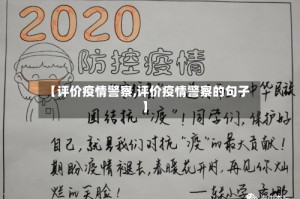 2020
防控疫情
【评价疫情警察,评价疫情警察的句子
】
中华民族
团结抗“疫”！同学们，保护好
自己，就是我们对抗“疫”的最大贡献！
期盼疫情褪去，春暖花开时，再见你灿
烂的笑脸！